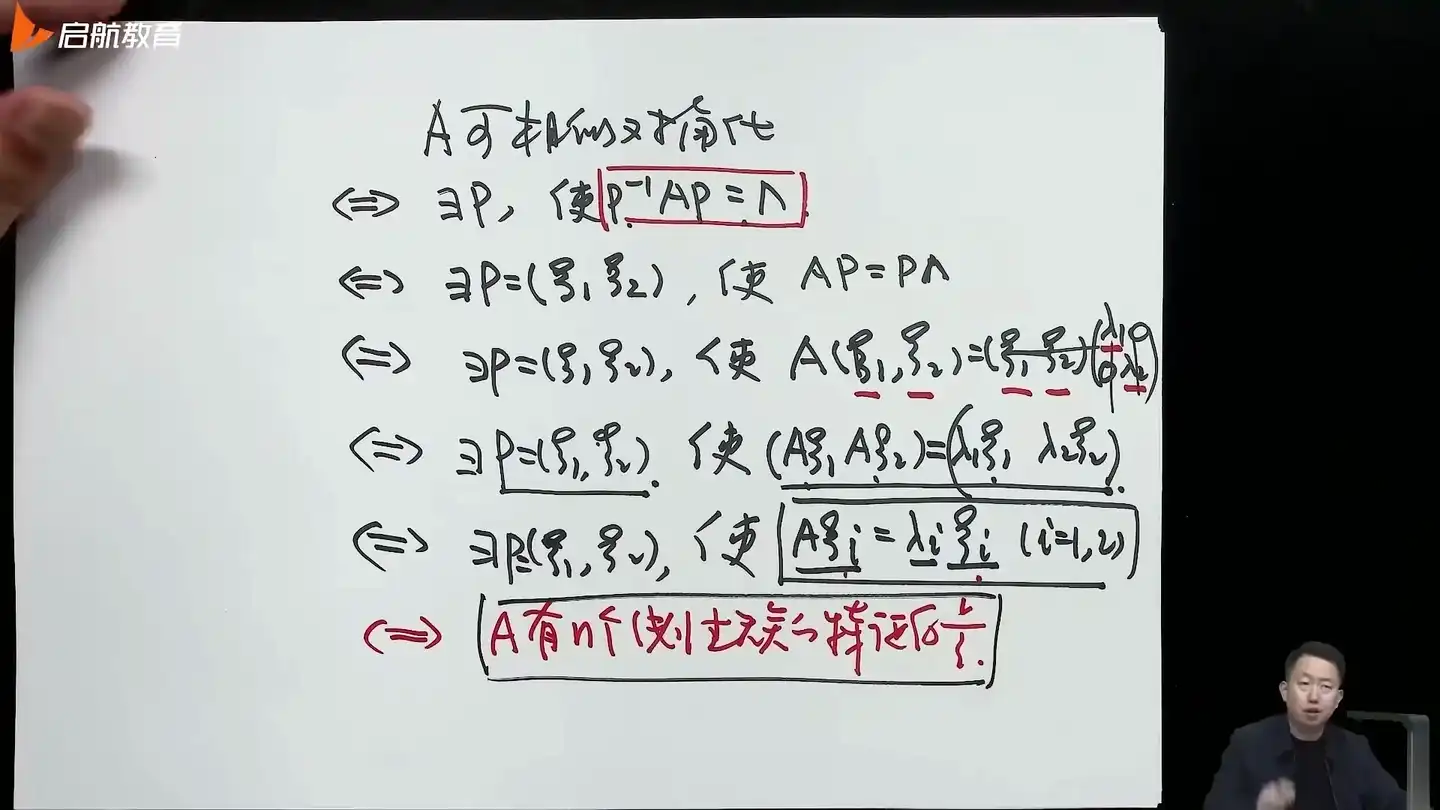 启航教育
A可相似对角化
⇔ ∃P, 使 P⁻¹AP=Λ.
⇔ ∃P=(ξ₁ ξ₂), 使 AP=PΛ
⇔ ∃P=(ξ₁, ξ₂), 使 A(ξ₁, ξ₂)=(ξ₁ ξ₂)(λ₁ 0 0 λ₂)
⇔ ∃P=(ξ₁, ξ₂). 使 (Aξ₁ Aξ₂)=(λ₁ξ₁ λ₂ξ₂).
⇔ ∃P=(ξ₁, ξ₂), 使 Aξᵢ=λᵢξᵢ (i=1,2)
⇔ A有n个线性无关的特征向量ξ.